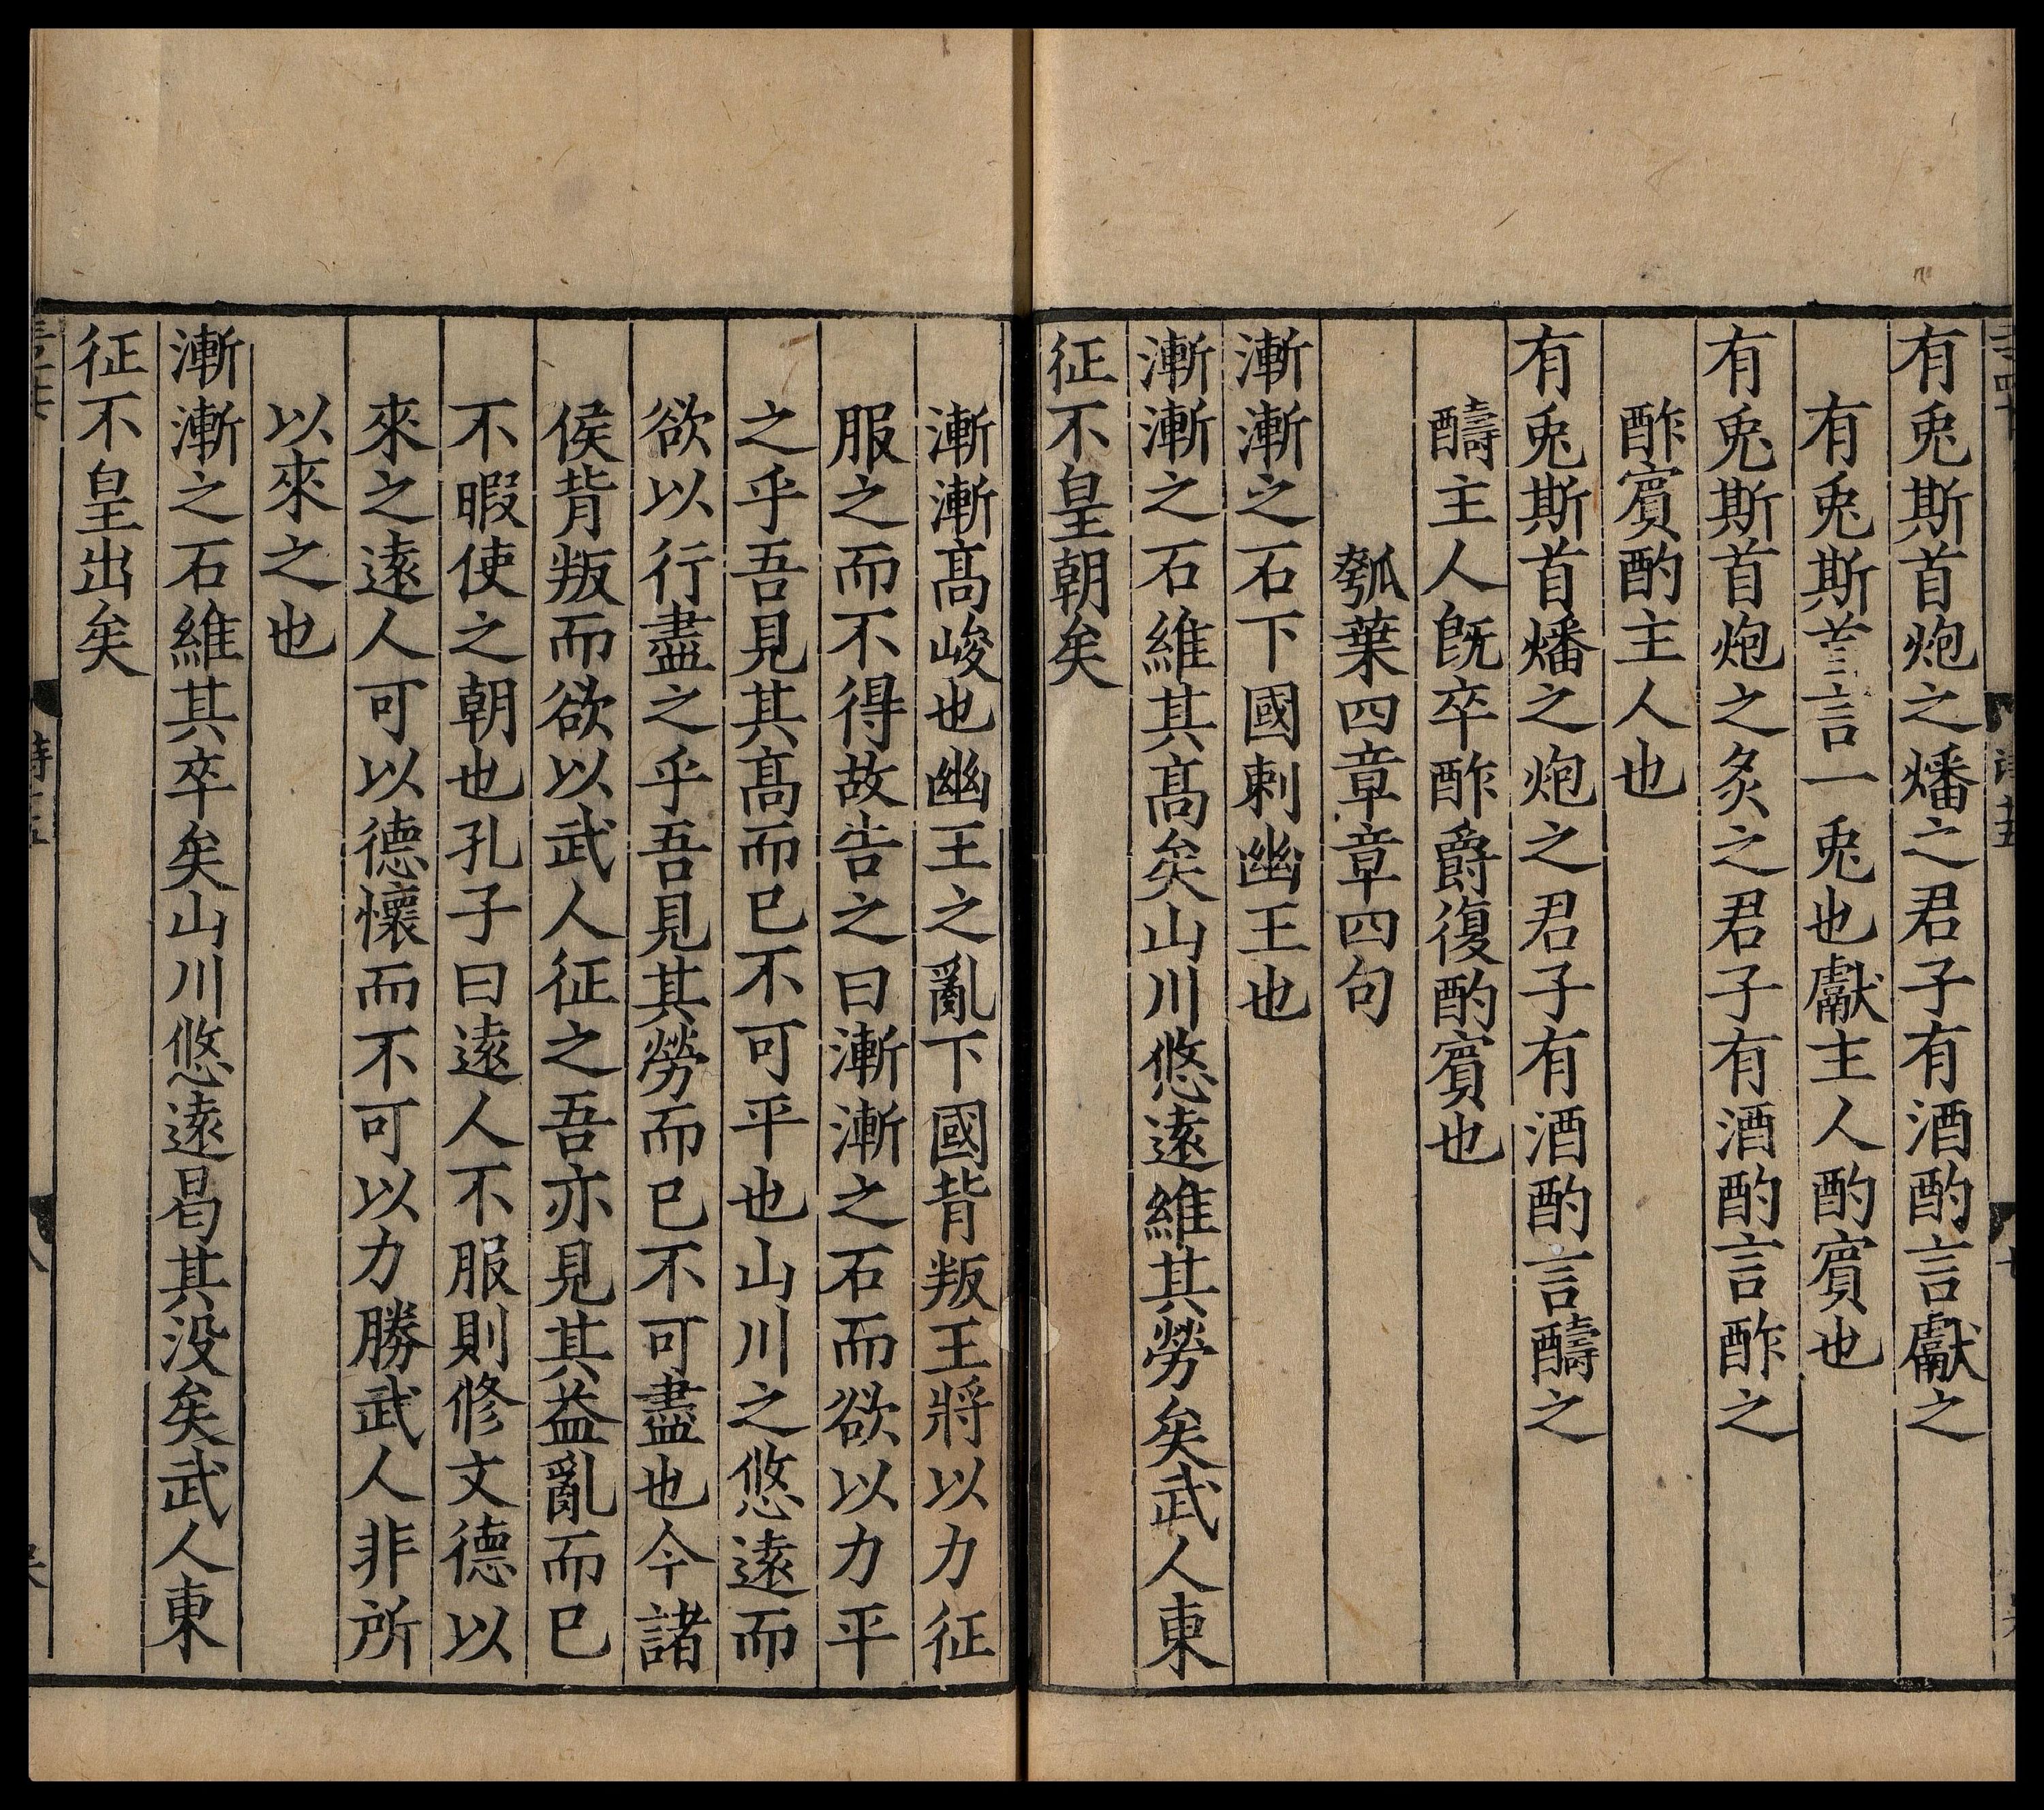 有兎斯首炮之燔之君子有酒酌言獻之
有兎斯首言一兎也獻主人酌賔也
有兎斯首炮之炙之君子有酒酌言酢之
酢賔酌主人也
有兎斯首燔之炮之君子有酒酌言醻之
醻主人旣卒酢爵復酌賔也
瓠葉四章章四句
漸漸之石下國刺幽王也
漸漸之石維其髙矣山川悠逺維其勞矣武人東
征不皇朝矣
漸漸髙峻也幽王之亂下國背叛王將以力征
服之而不得故告之曰漸漸之石而欲以力平
之乎吾見其髙而已不可平也山川之悠逺而
欲以行盡之乎吾見其勞而已不可盡也今諸
侯背叛而欲以武人征之吾亦見其益亂而已
不暇使之朝也孔子曰逺人不服則修文德以
來之逺人可以德懷而不可以力勝武人非所
以來之也
漸漸之石維其卒矣山川悠逺曷其没矣武人東
征不皇出矣